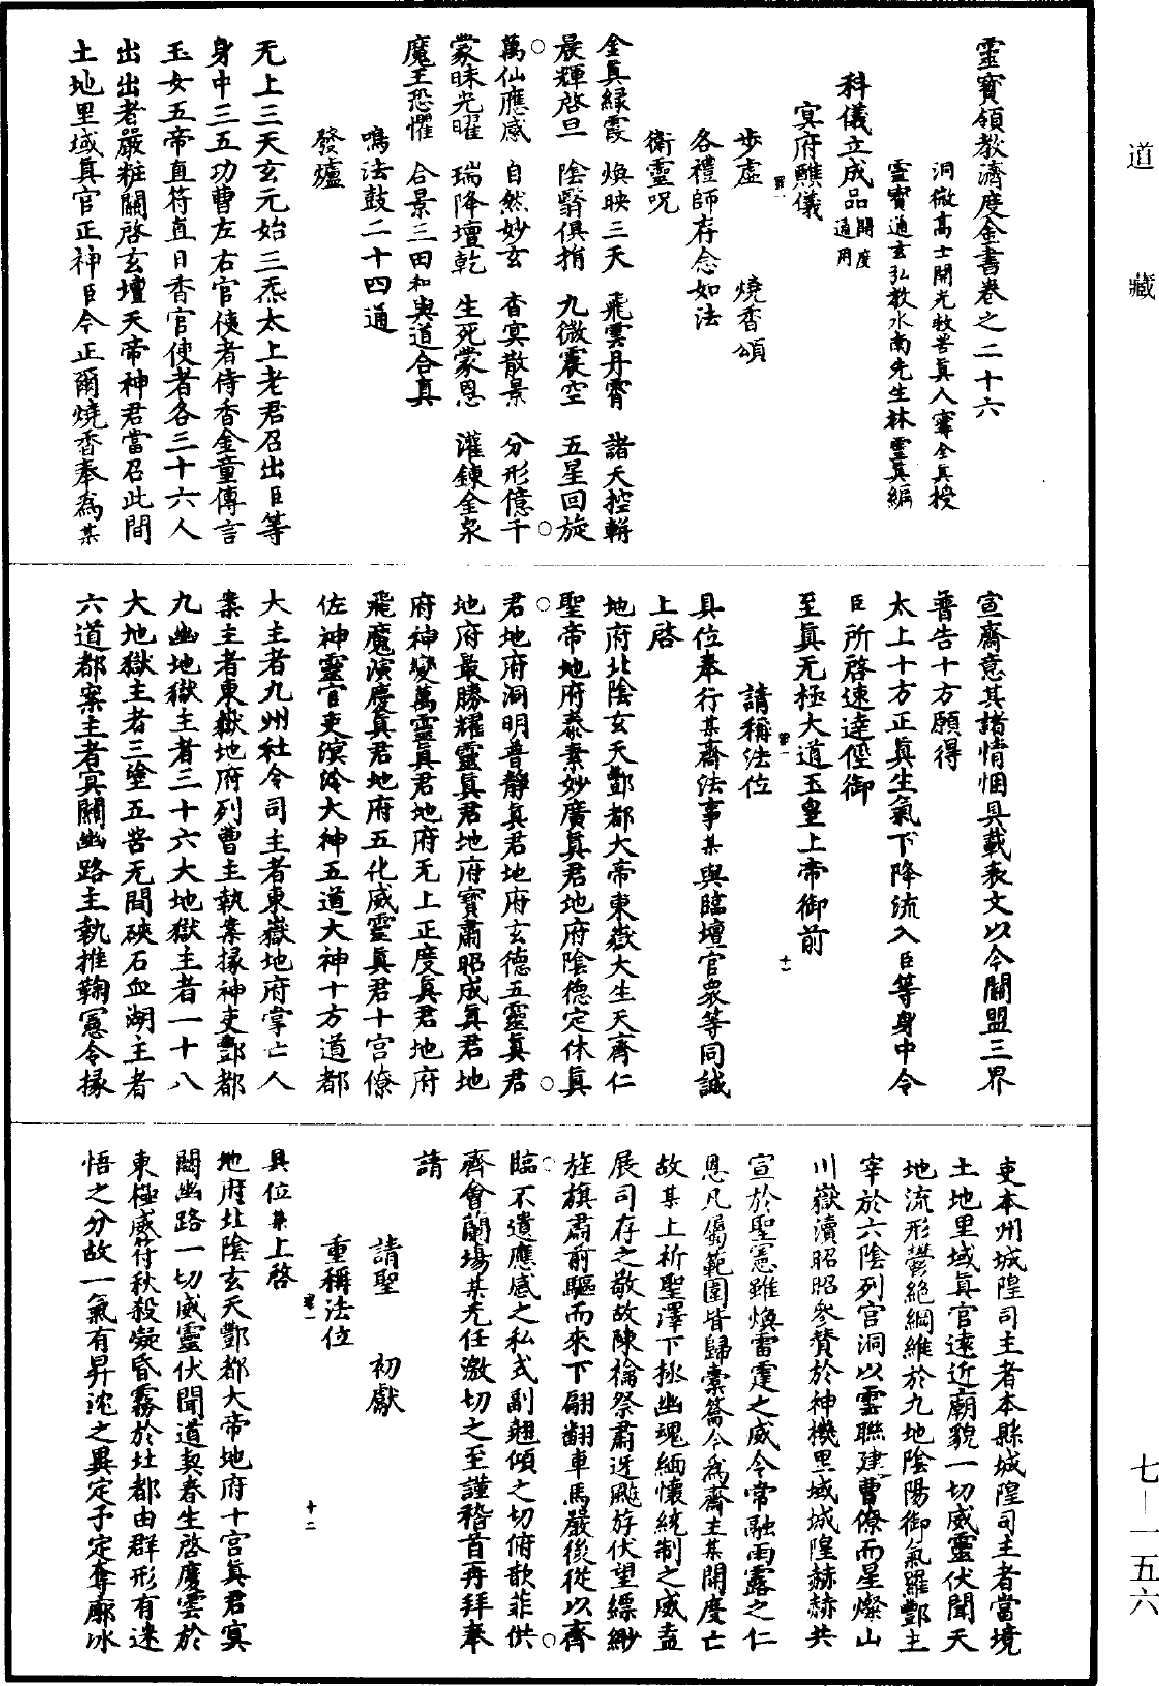 道藏
七—一五六
靈寶領教濟度金書卷之二十六
洞微高士開光救苦真人甯全真授
靈寶通玄弘教水南先生林靈真編
科儀立成品開度通用
冥府醮儀
步虛　燒香頌
各禮師存念如法
衛靈呪
金真緑霞　煥映三天　飛雲丹霄　諸天控輧
晨輝啓旦　陰翳俱捐　九微震空　五星回旋
萬仙應感　自然妙玄　杳冥散景　分形億千
蒙昧光曜　瑞降壇乾　生死蒙恩　灌鍊金泉
魔王恐懼　合景三田　和與道合真
鳴法鼓二十四通
發爐
无上三天玄元始三炁太上老君召出臣等
身中三五功曹左右官使者侍香金童傳言
玉女五帝直符直日香官使者各三十六人
出出者嚴粧關啓玄壇天帝神君當召此間
土地里域真官正神臣今正爾燒香奉爲某
宣齋意其諸情悃具載表文以今關盟三界
普告十方願得
太上十方正真生氣下降流入臣等身中令
臣所啓速達徑御
至真无極大道玉皇上帝御前
請稱法位
具位奉行某齋法事某與臨壇官衆等同誠
上啓
地府北陰玄天酆都大帝東嶽大生天齊仁
聖帝地府泰素妙廣真君地府陰德定休真
君地府洞明普靜真君地府玄德五靈真君
地府最勝耀靈真君地府寶肅昭成真君地
府神變萬靈真君地府无上正度真君地府
飛魔演慶真君地府五化威靈真君十宫僚
佐神靈官吏溟泠大神五道大神十方道都
大主者九州社令司主者東嶽地府掌亡人
案主者東嶽地府列曹主執案掾神吏酆都
九幽地獄主者三十六大地獄主者一十八
大地獄主者三塗五苦无間硤石血湖主者
六道都案主者冥關幽路主執推鞫憲令掾
吏本州城隍司主者本縣城隍司主者當境
土地里域真官遠近廟貌一切威靈伏聞天
地流形鬱絶綱維於九地陰陽御氣羅酆主
宰於六陰列宫洞以雲聯建曹僚而星燦山
川嶽瀆昭昭參賛於神機里域城隍赫赫共
宣於聖憲雖煥雷霆之威令常融雨露之仁
恩凡屬範圍皆歸橐籥今爲齋主某開度亡
故某上祈聖澤下拯幽魂緬懷統制之威盍
展司存之敬故陳禴祭肅迓飈斿伏望縹緲
旌旗肅前驅而來下翩翻車馬嚴後從以齊
臨不遺應感之私式副翹傾之切俯歆菲供
齊會蘭場某无任激切之至謹稽首再拜奉
請
請聖　初獻
重稱法位
具位某上啓
地府北陰玄天酆都大帝地府十宫真君冥
關幽路一切威靈伏聞道契春生啓慶雲於
東極威符秋殺凝昏霧於北都由群形有迷
悟之分故一氣有昇沈之異定予定奪廓冰